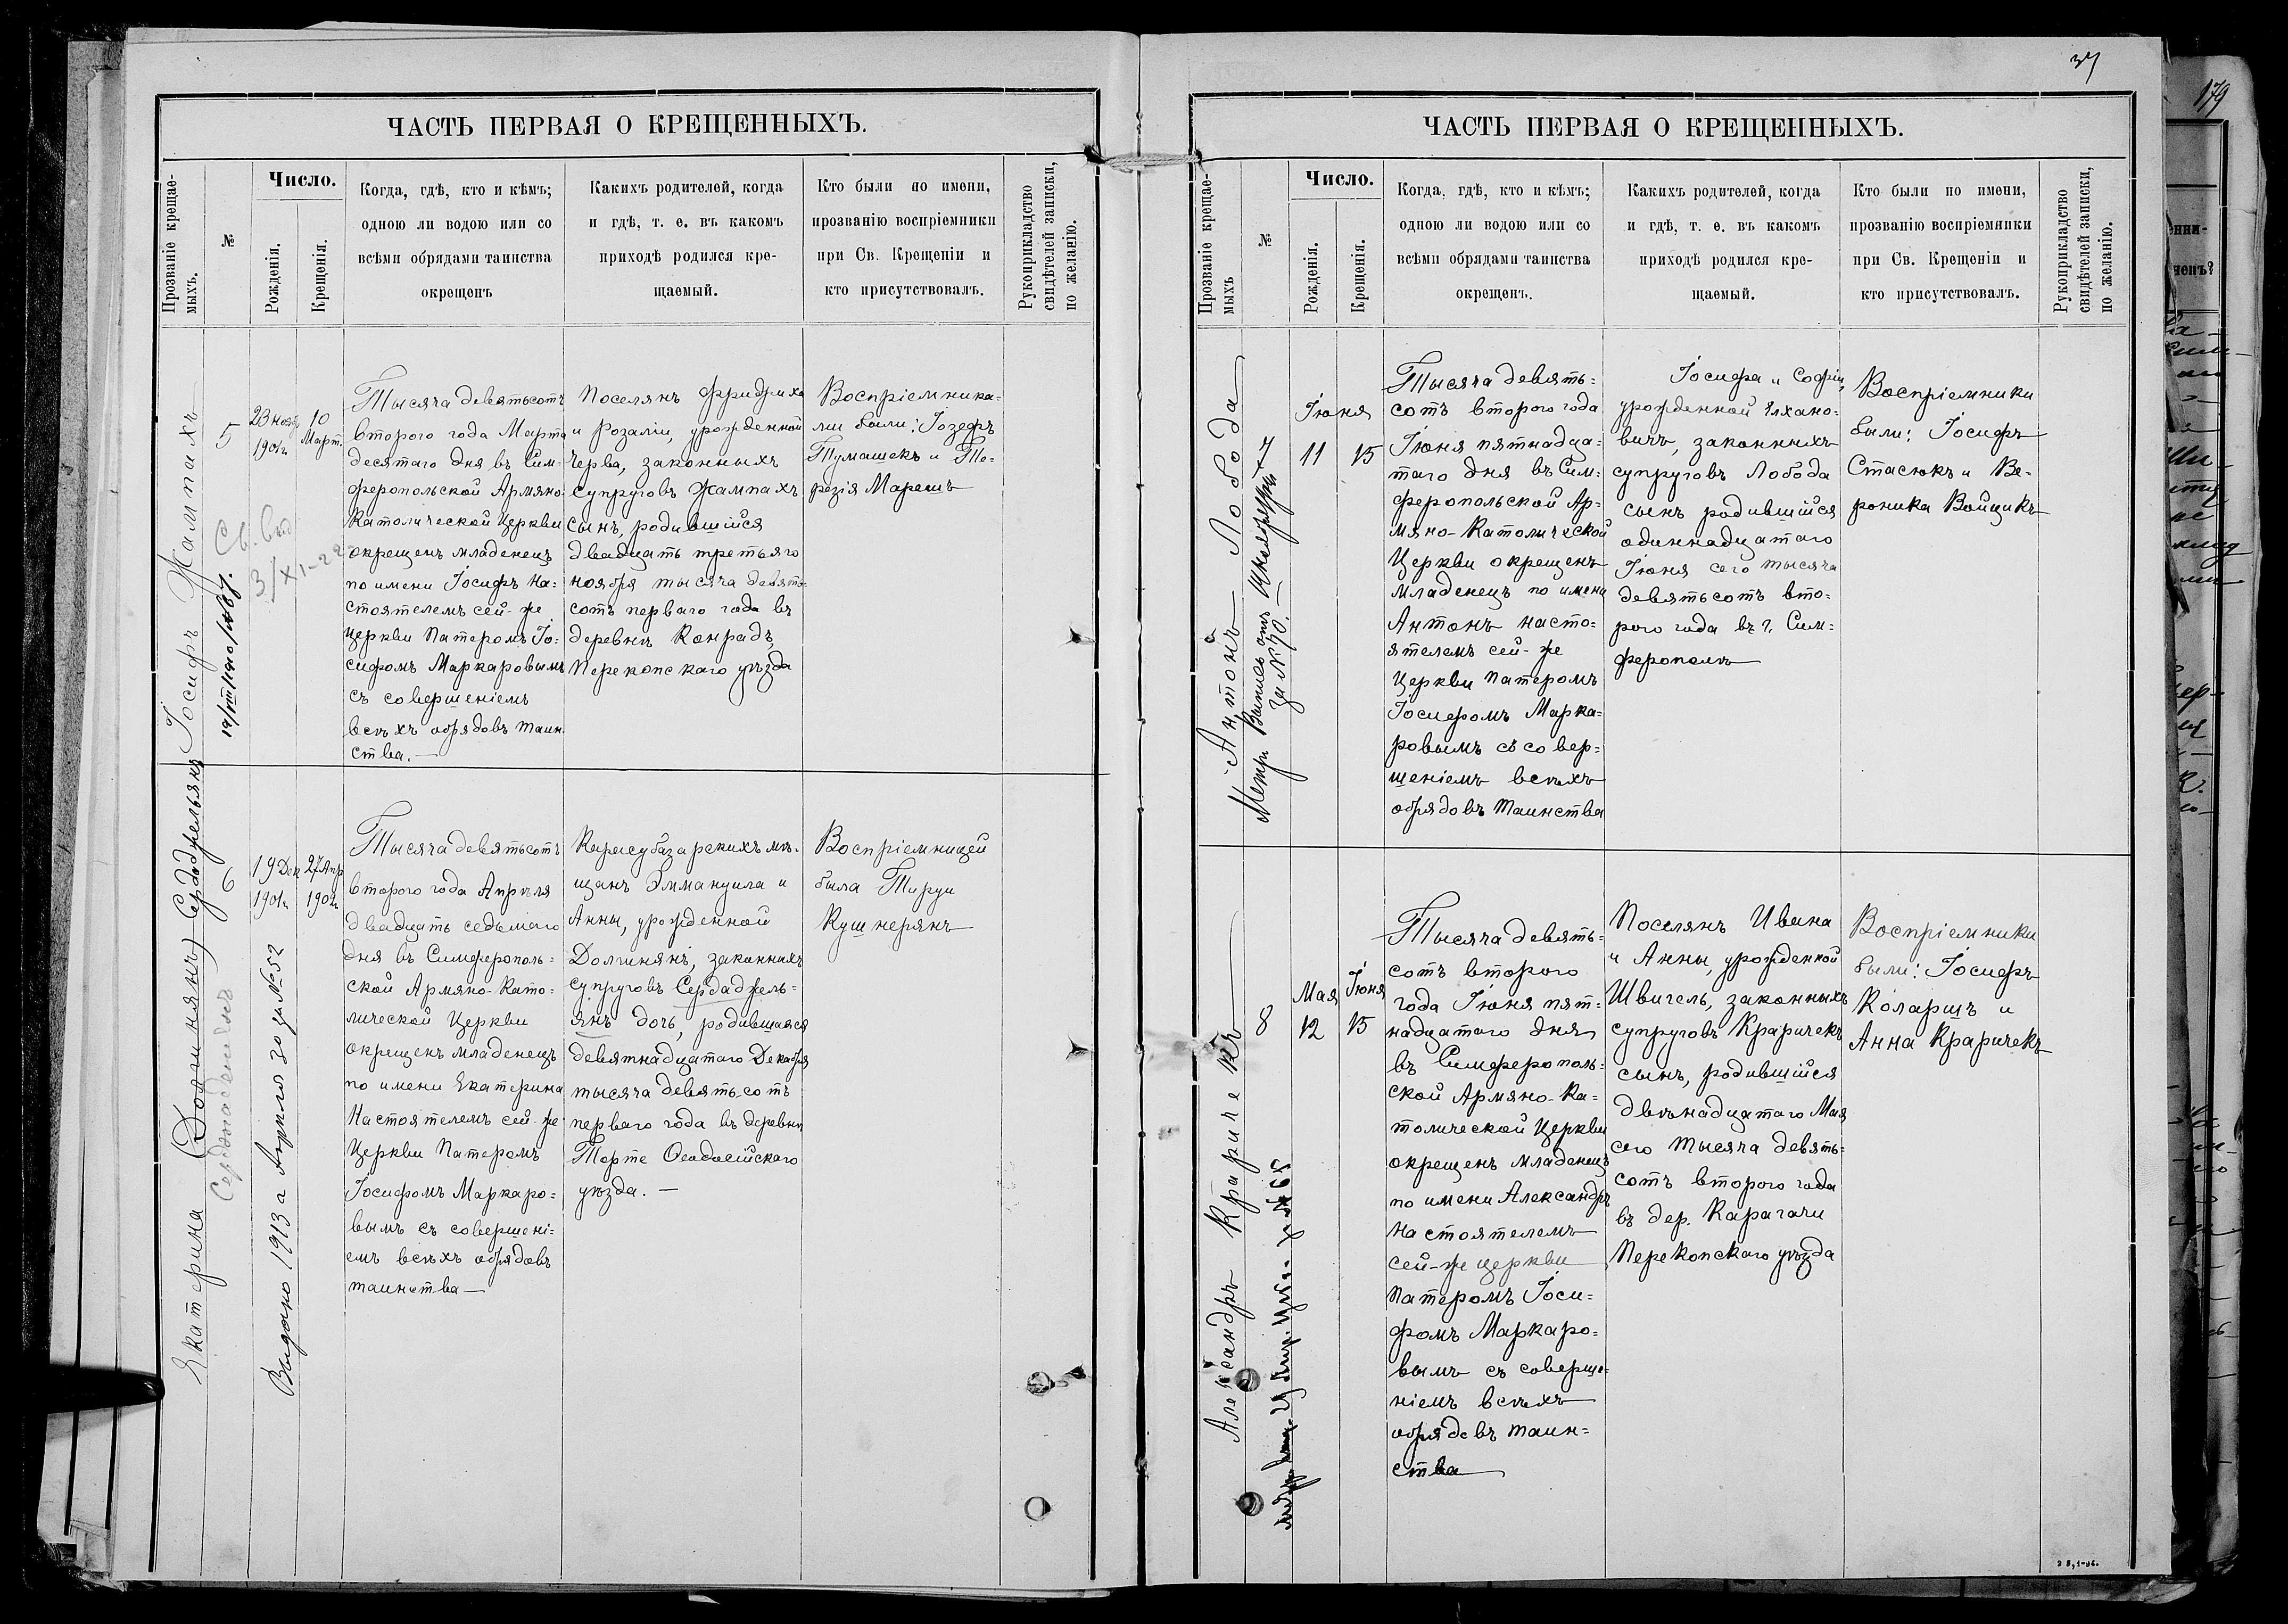 37
179
ЧАСТЬ ПЕРВАЯ О КРЕЩЕННЫХЪ.
Прозваніе крещае-
мыхъ.
№
Число.
Рожденія.
Крещенія.
Когда, гдѣ, кто и кѣмъ;
одною ли водою или со
всѣми обрядами таинства
окрещенъ
Какихъ родителей, когда
и гдѣ, т. е. въ какомъ
приходѣ родился кре-
щаемый.
Кто были по имени,
прозванію воспріемники
при Св. Крещеніи и
кто присутствовалъ.
Рукоприкладство
свидѣтелей записки,
по желанію.
Іосифъ Жампахъ
5
23 нояб
1901г.
10
Март.
Св. выд
3/XI-22
19/VIII 1910
Тысяча девятьсотъ
второго года Марта
десятаго дня въ Сим-
феропольской Армяно-
Католической Церкви
окрещенъ младенецъ
по имени Іосифъ На=
стоятелемъ сей-же
Церкви Патеромъ Іо=
сифомъ Маркаровымъ
съ совершеніемъ
всѣхъ обрядовъ таин
ства.—
Поселянъ Фридриха
и Розаліи, урожденной
Черва, законныхъ
супруговъ Жампахъ
сынъ, родившійся
двадцать третьяго
ноября тысяча девять-
сотъ перваго года въ
деревнѣ Конрадъ,
Перекопскаго уѣзда
Воспріемника-
ми были: Іозефъ
Тумашекъ и Те-
резія Марешъ
Екатерина (Долинянъ) Сердаджельянъ
6
19 Дек
1901г.
27 Апр
1902г.
Выдано 1913 а Апрѣля 30 за № 52
Тысяча девятьсотъ
второго года Апрѣля
двадцать седьмаго
дня въ Симферополь=
ской Армяно-Като=
лической Церкви
окрещенъ младенецъ
по имени Екатерина
Настоятелемъ сей-же
Церкви Патеромъ
Іосифомъ Маркаро=
вымъ съ совершені=
емъ всѣхъ обрядовъ
таинства—
Карасубазарскихъ мѣ-
щанъ Эммануила и
Анны, урожденной
Долинянъ, законныхъ
супруговъ Сердаджель=
янъ дочь, родившаяся
девятнадцатаго Декабря
тысяча девять-сотъ
перваго года въ деревнѣ
Терте Ѳеодосійскаго
уѣзда.—
Воспріемницей
была Тируи
Кушнерянъ
ЧАСТЬ ПЕРВАЯ О КРЕЩЕННЫХЪ.
Прозваніе крещае-
мыхъ
№
Число.
Рожденія.
Крещенія.
Когда, гдѣ, кто и кѣмъ;
одною ли водою или со
всѣми обрядами таинства
окрещенъ.
Какихъ родителей, когда
и гдѣ, т. е. въ какомъ
приходѣ родился кре-
щаемый.
Кто были по имени,
прозванію воспріемники
при Св. Крещеніи и
кто присутствовалъ.
Рукоприкладство
свидѣтелей записки,
по желанію.
Антонъ Лобода
за № 90.—
7
Іюня
11
15
Тысяча девять=
сотъ второго года
Іюня пятнадца=
таго дня въ Сим=
феропольской Ар=
мяно-Католической
Церкви окрещенъ
Младенецъ по имени
Антонъ насто=
ятелемъ сей-же
Церкви Патеромъ
Іосифомъ Марка=
ровымъ съ совер=
шеніемъ всѣхъ
обрядовъ таинства
Іосифа и Софіи,
урожденной Елхано=
вичъ, законныхъ
супруговъ Лобода
сынъ родившійся
одиннадцатаго
Іюня сего тысяча
девятьсотъ вто=
рого года въ г. Сим=
ферополѣ
Воспріемники
были: Іосифъ
Стасюкъ и Ве-
роника Войщикъ
Александръ Краричекъ
8
Мая
12
Іюня
15
Тысяча девять=
сотъ второго
года Іюня пят=
надцатаго дня
въ Симферополь=
ской Армяно-Ка=
толической Церкви
окрещенъ младенецъ
по имени Александръ
Настоятелемъ
сей-же церкви
Патеромъ Іоси=
фомъ Маркаро=
вымъ съ соверше=
ніемъ всѣхъ
обрядовъ таин=
ства
Поселянъ Ивана
и Анны, урожденной
Швигель, законныхъ
супруговъ Краричекъ
сынъ, родившійся
двѣнадцатаго Мая
сего тысяча девять=
сотъ второго года
въ дер. Карагачи
Перекопскаго уѣзда
Воспріемники
были: Іосифъ
Коларшъ и
Анна Краричекъ